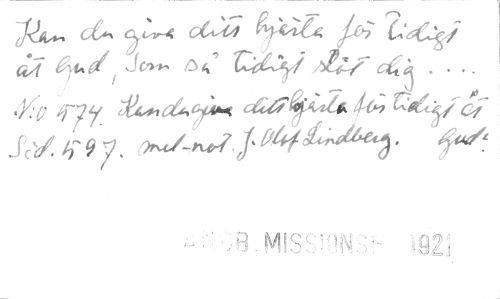 Kan du giva ditt hjärta för tidigt
åt Gud, som så tidigt söt dig ....
N:o 574. Kan du giva ditt hjärta för tidigt åt
Sid. 597. mel-not. J. Olof Lindberg. Gud?
MISSIONSF 1921